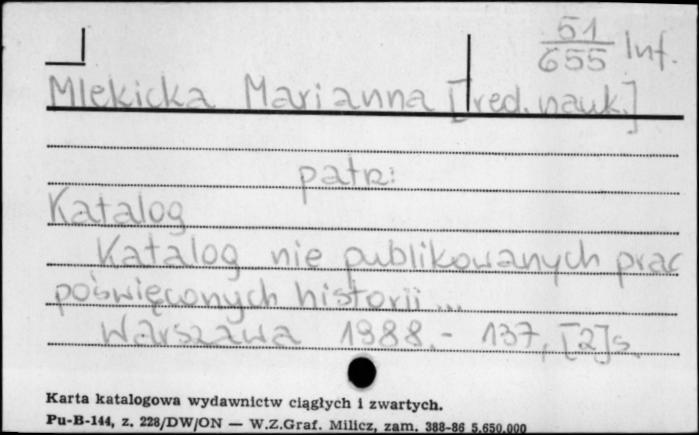 51
655 Inf.
Mlekicka Marianna [red. nauk.]
patrz:
Katalog
Katalog nie publikowanych prac
poświęconych historii...
Warszawa 1988.- 137, [2] s.
Karta katalogowa wydawnictw ciągłych i zwartych.
Pu-B-144, z. 228/DW/ON — W.Z.Graf. Milicz, zam. 388-86 5.650.000